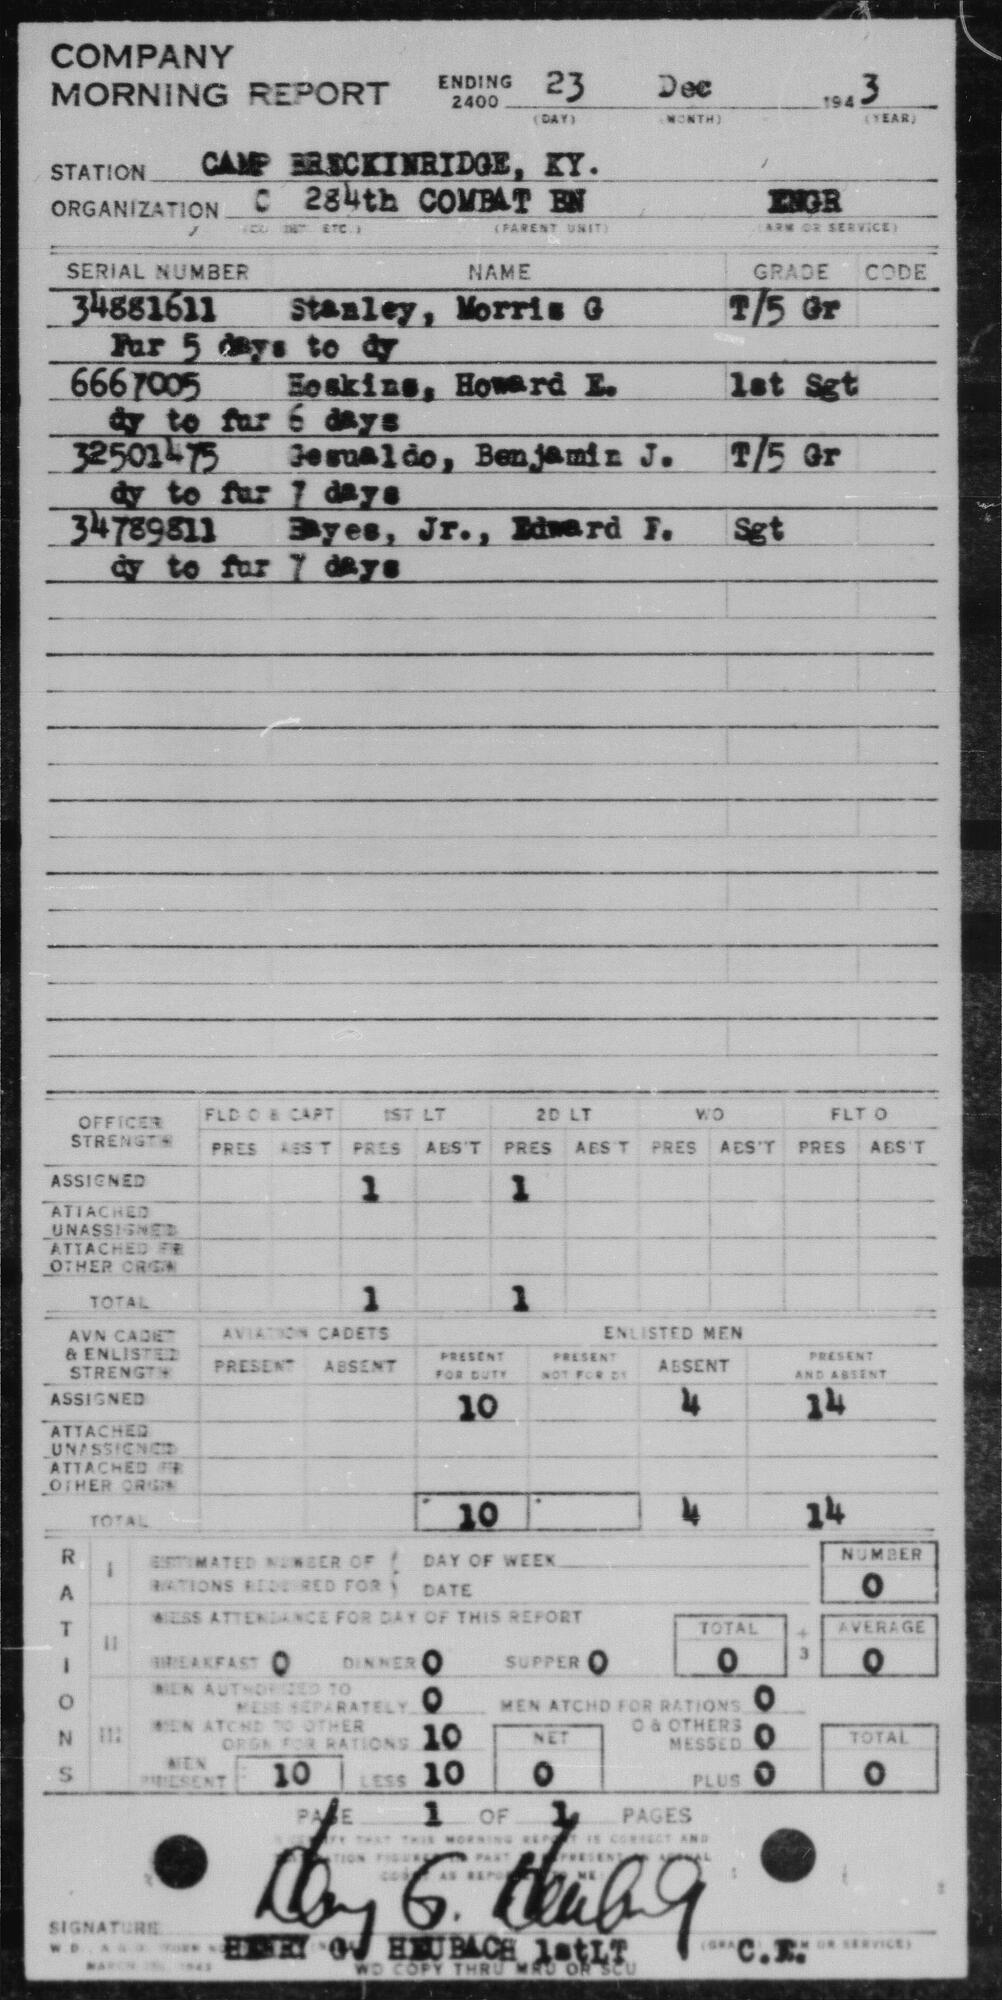 COMPANY
MORNING REPORT ENDING 2400 23 Dec 1943
(DAY) (MONTH) (YEAR)
STATION CAMP BRECKINRIDGE, KY.
ORGANIZATION C 284th COMBAT BN ENGR
(CO DET ETC.) (PARENT UNIT) (ARM OR SERVICE)
SERIAL NUMBER NAME GRADE CODE
34881611 Stanley, Morris G T/5 Gr
Fur 5 days to dy
6667005 Hoskins, Howard E. 1st Sgt
dy to fur 6 days
32501475 Gesualdo, Benjamin J. T/5 Gr
dy to fur 7 days
34789811 Hayes, Jr., Edward F. Sgt
dy to fur 7 days
OFFICER STRENGTH FLD O & CAPT 1ST LT 2D LT WO FLT O
PRES ABS'T PRES ABS'T PRES ABS'T PRES ABS'T PRES ABS'T
ASSIGNED 1 1
ATTACHED UNASSIGNED
ATTACHED FR OTHER ORGN
TOTAL 1 1
AVN CADET & ENLISTED STRENGTH AVIATION CADETS ENLISTED MEN
PRESENT ABSENT PRESENT FOR DUTY PRESENT NOT FOR DY ABSENT PRESENT AND ABSENT
ASSIGNED 10 4 14
ATTACHED UNASSIGNED
ATTACHED FR OTHER ORGN
TOTAL 10 4 14
RATIONS
I ESTIMATED NUMBER OF RATIONS REQUIRED FOR DAY OF WEEK DATE NUMBER 0
II MESS ATTENDANCE FOR DAY OF THIS REPORT TOTAL ÷ 3 AVERAGE
BREAKFAST 0 DINNER 0 SUPPER 0 0 0
III MEN AUTHORIZED TO MESS SEPARATELY 0 MEN ATCHD FOR RATIONS 0
MEN ATCHD TO OTHER ORGN FOR RATIONS 10 NET O & OTHERS MESSED 0 TOTAL
MEN PRESENT 10 LESS 10 0 PLUS 0 0
PAGE 1 OF 1 PAGES
I CERTIFY THAT THIS MORNING REPORT IS CORRECT AND
RATION FIGURES IN PART PRESENT ACTUAL
COUNT AS REPORTED TO ME
Henry G. Heubach
SIGNATURE
HENRY G. HEUBACH 1stLT C.E.
(GRADE) (ARM OR SERVICE)
WD COPY THRU MRU OR SCU